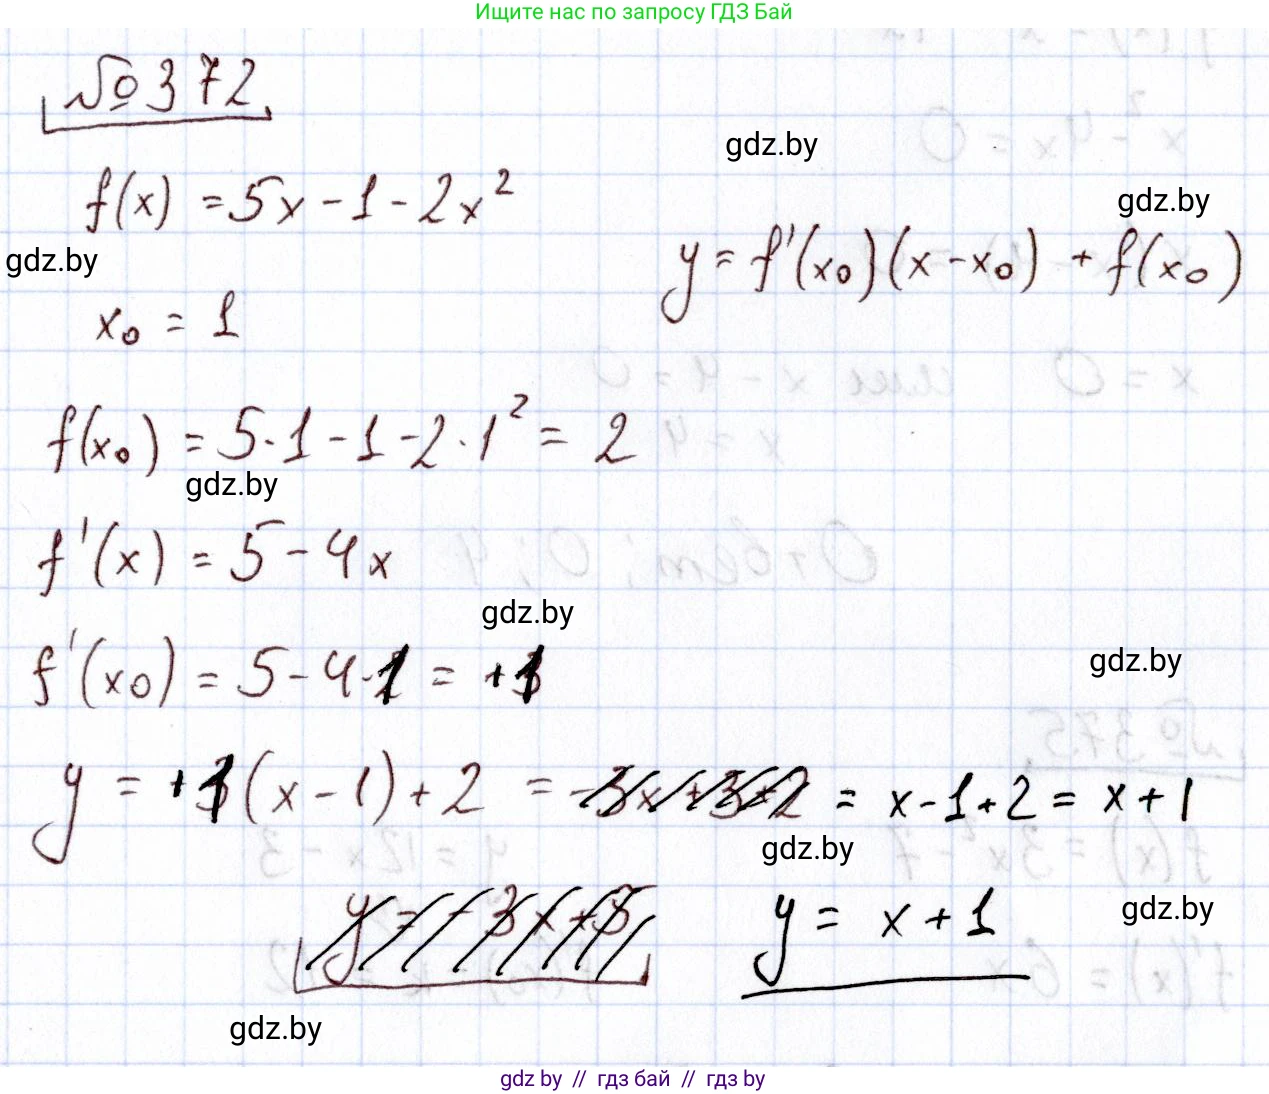 Ищите нас по запросу ГДЗ Бай
№372
gdz.by
f(x) = 5x - 1 - 2x²
gdz.by
gdz.by
y = f'(x₀)(x - x₀) + f(x₀)
x₀ = 1
f(x₀) = 5·1 - 1 - 2·1² = 2
gdz.by
f'(x) = 5 - 4x
gdz.by
f'(x₀) = 5 - 4·1 = +1
gdz.by
y = +1(x - 1) + 2 = -3x + 3 + 2 = x - 1 + 2 = x + 1
gdz.by
y = -3x + 5
y = x + 1
gdz.by
gdz.by
gdz by // гдз бай // гдз by